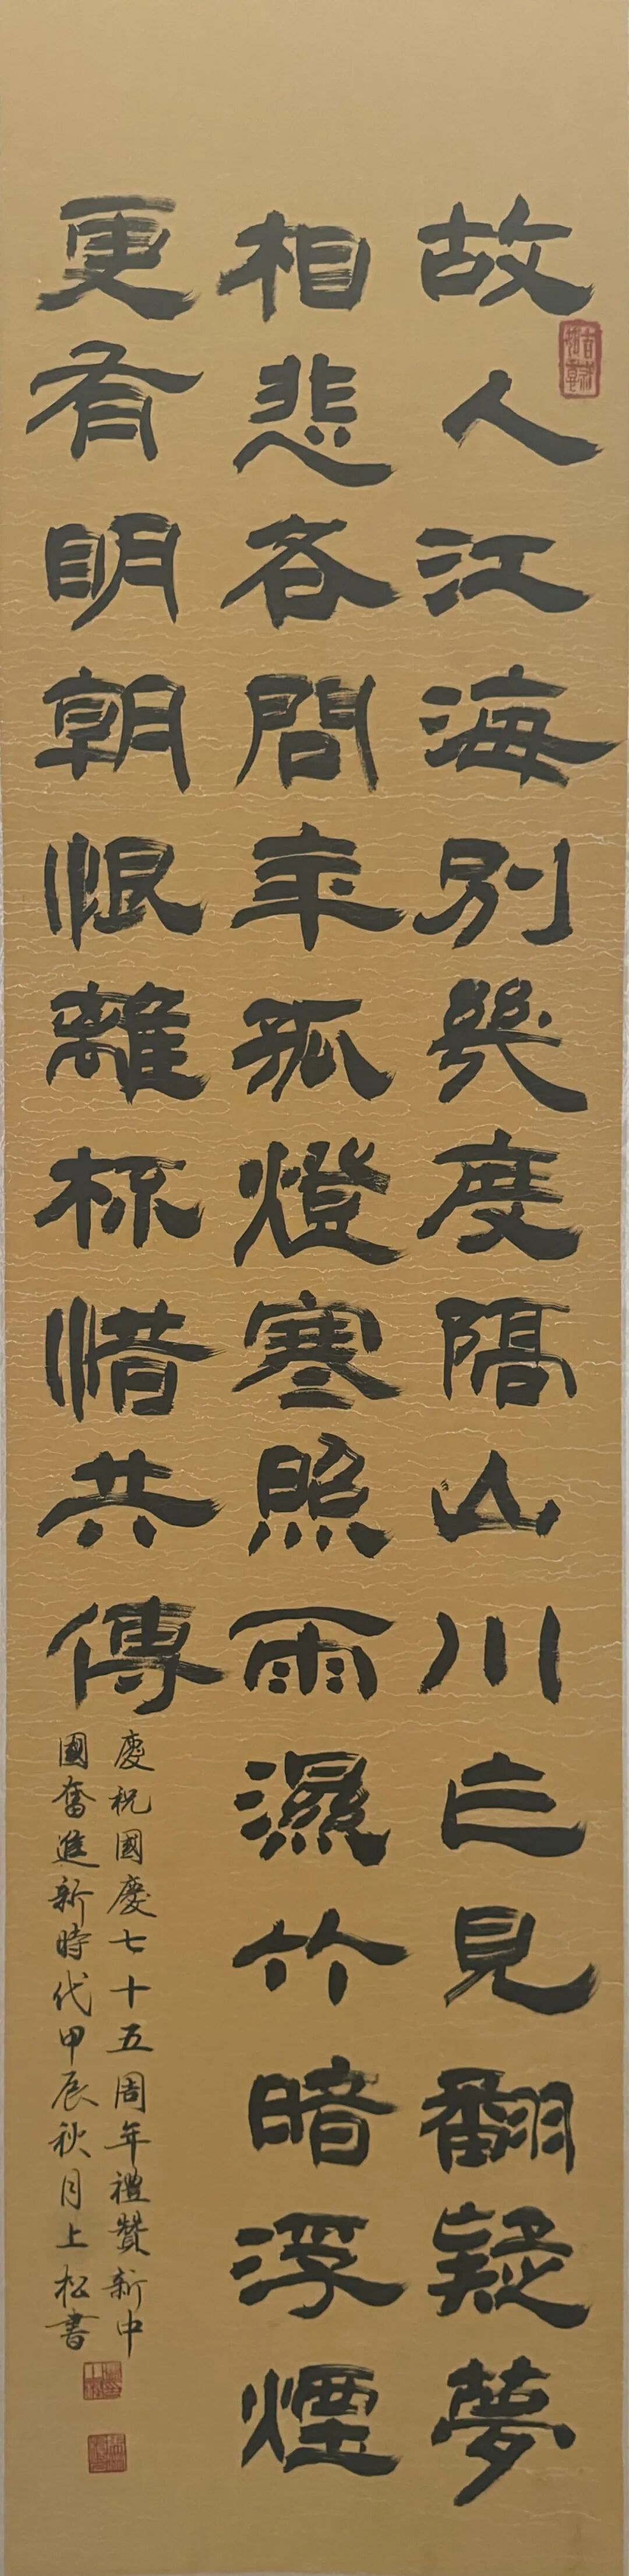 故人江海別幾度隔山川亡見翻疑夢
相悲各問年孤燈寒照雨濕竹暗浮煙
更有明朝恨離杯惜共傳
慶祝國慶七十五周年禮贊新中
國奮進新時代甲辰秋月上松書